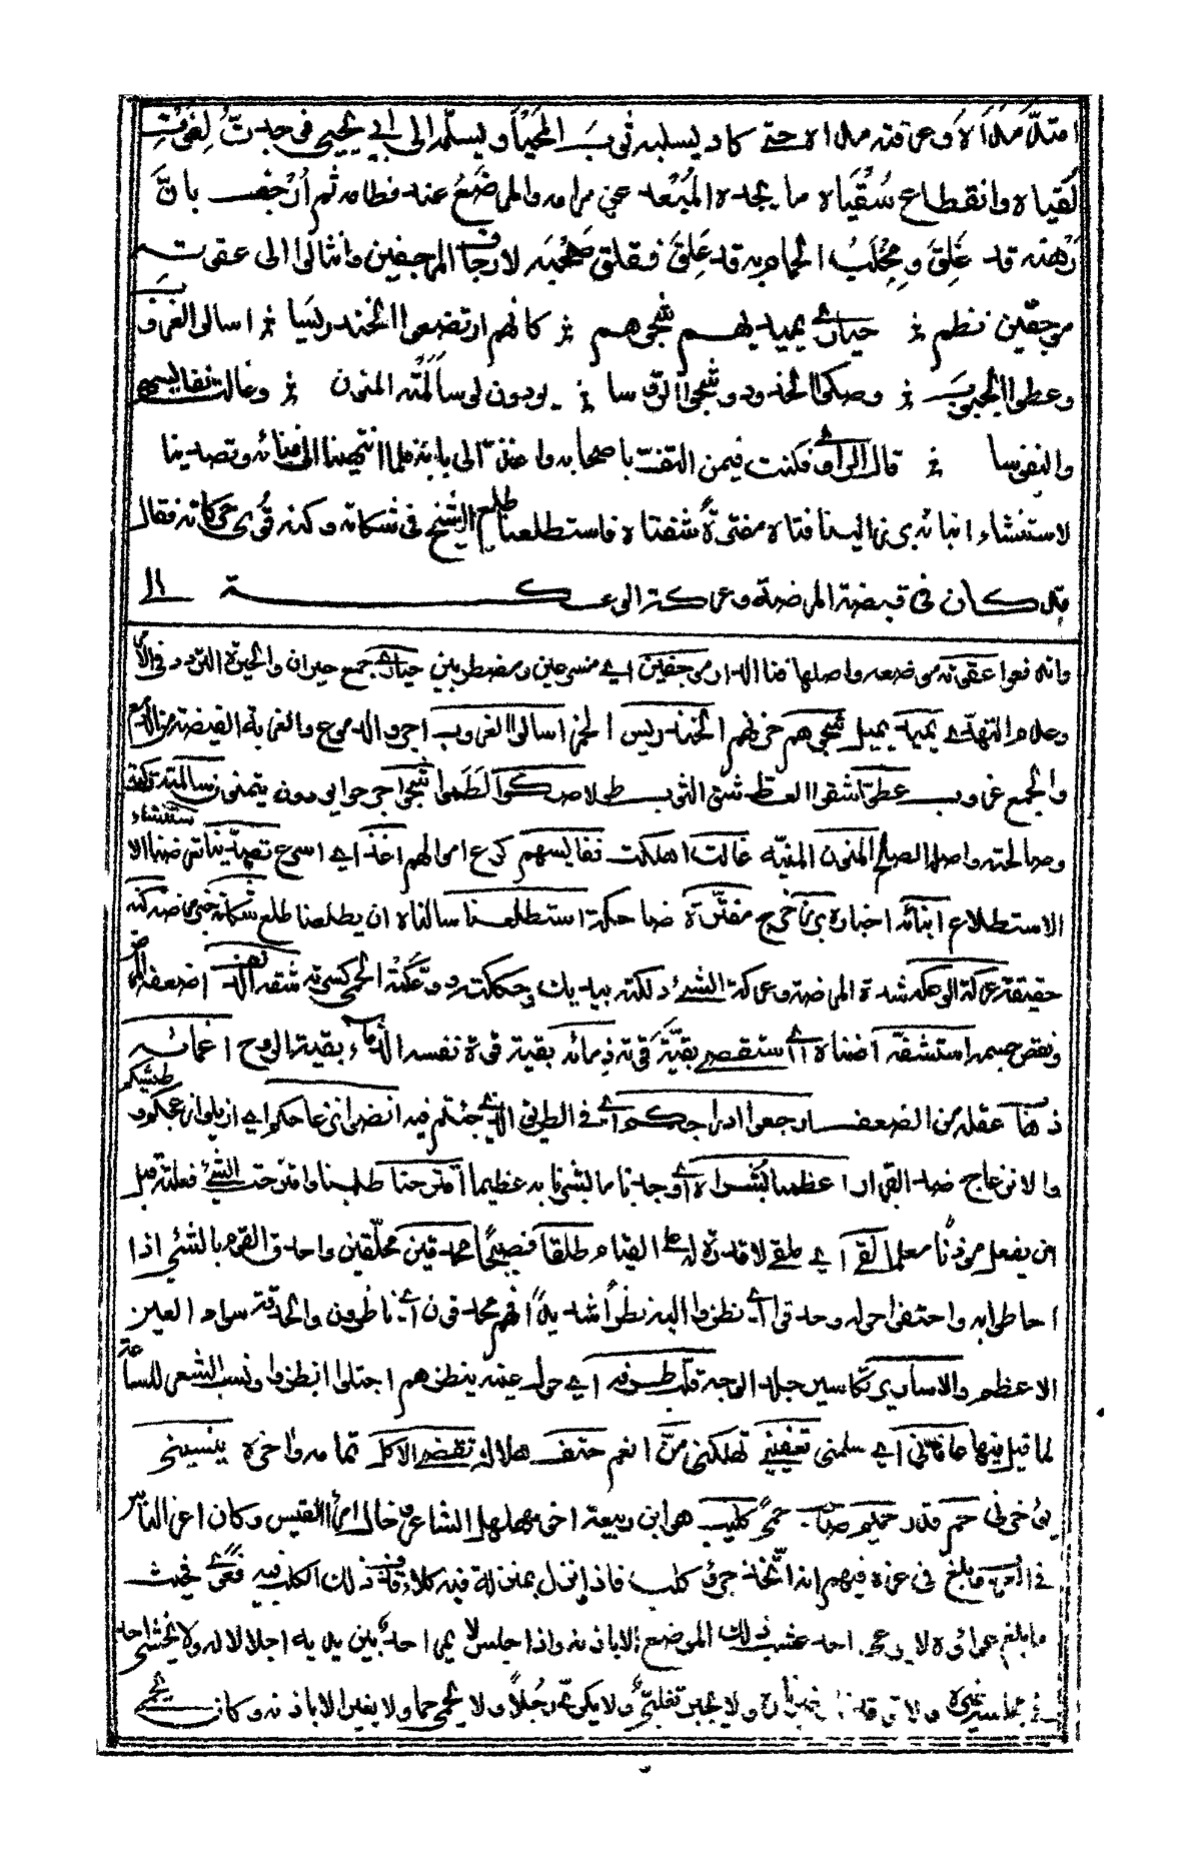 امتدّ مداه وعرقته مداه حتى كاد يسلبه ثوب المحيا ويسلمه الى ابي يحيى فوجدت لفوت
لقياه وانقطاع سقياه ما يجده المبعد عن مرامه والمرضع عند فطامه ثم ارجف بان
رهنه قد غلق ومخلب الحمام به قد علق فقلق صحبه لارجاف المرجفين وانثالوا الى عقوته
موجفين نظم حيارى يميد بهم شجوهم كانهم ارتضعوا الخندريسا اسالوا الغروب
وعطوا الجيوب وصكوا الخدود وشجوا الرؤسا يودون لو سالمته المنون وغالت نفائسهم
والنفوسا قال الراوي فكنت فيمن التفّ باصحابه واغذّ الى بابه فلما انتهينا الى فنائه وتصدينا
لاستنشاء انبائه برز الينا فتاه مفترّة شفتاه فاستطلعناه طلع الشيخ في شكاته وكنه قوى حركاته فقال
قد كان في قبضة المرضة وعركة الوعكة الى
وانه فعوا عقوته موضعه واصلها فنا الدار موجفين اي مسرعين ومضطربين حيارى جمع حيران والحيرة التردد في الامر
وعدم التهدي يميد يميل شجوهم حزنهم الخندريس الخمر اسالوا الغروب اجروا الدموع والغرب
والجمع غروب عطوا شقوا العط شق الثوب طولا صكوا لطموا شجوا جرحوا يودون يتمنون سالمته تركته
وصالحته واصله الصلح المنون المنية غالت اهلكت نفائسهم كرع اموالهم اغذ اي اسرع تصدينا تعرضنا
الاستطلاع انبائه اخباره برز خرج مفترّة ضاحكة استطلعنا سالناه ان يطلعنا طلع شكاته خبر مرضه كنه
حقيقة عركة الوعكة شدة المرض وعركة الشيء دلكته بيديك وحككته ووعكته الحمى كسرته شفه اضعفه
ونقص جسمه استشفه اضناه اي استقصى بقية قوته ذمائه بقية قوة نفسه الذماء بقية الروح اغمائه
ذهاب عقله من الضعف ارجعوا ادراجكم اي في الطريق الذي جئتم فيه انضوا انزعاجكم اي ازيلوا
والانزعاج ضد القرار اعظمنا بشراه اي وجدنا ما بشرنا به عظيما اقترحنا طلبنا واقترحت الشيء فعلته قبل
ان يفعل موذنا معلما لقى اي ملقى لا قدرة له على القيام طلقا فصيحا محدقين محلقين واحدق القوم بالشيء اذا
احاطوا به واحتفوا حوله وحدقوا اي نظروا اليه نظرا شديدا فهم محدقون اي ناظرون والحدقة سواد العين
الاعظم والاسارير تكاسير جلد الوجه قلب طرفه اي حول عينه ينظرهم اجتلوا انظروا ونسب الشعر للساعة
لما قيل فيها عافاني اي سلمني تعفيني تهلكني منّ انعم حتف هلاك تقضي الاكل تمامه واخره ينسيني
يؤخرني حم قدر حميم صاحب حمى كليب هو ابن ربيعة اخو مهلهل الشاعر خال امرئ القيس وكان اعز الناس
في العرب وبلغ في عزه فيهم انه اتخذ جرو كلب فاذا نزل بمنزلة فيه كلاء قذف ذلك الكلب فيه فعوى فحيث
ما بلغ عواؤه لا يرعى احد عشب ذلك الموضع الا باذنه واذا جلس لا يمر احد بين يديه اجلالا له ولا يحتبي احد
في مجلسه غيره ولا توقد نار غير ناره ولا يجير تغلبي ولا بكري رجلا ولا يحمي حما ولا يغير الا باذنه وكان يحمي